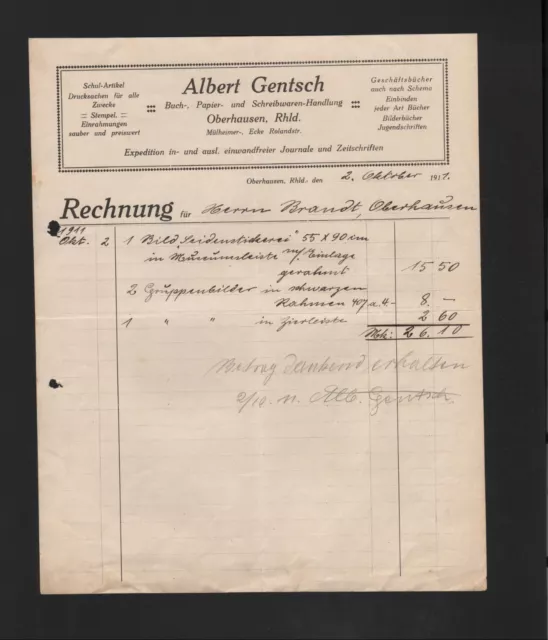 Schul-Artikel
Drucksachen für alle
Zwecke
:: Stempel. ::
Einrahmungen
sauber und preiswert
Albert Gentsch
Buch-, Papier- und Schreibwaren-Handlung
Oberhausen, Rhld.
Mülheimer-, Ecke Rolandstr.
Geschäftsbücher
auch nach Schema
Einbinden
jeder Art Bücher
Bilderbücher
Jugendschriften
Expedition in- und ausl. einwandfreier Journale und Zeitschriften
Oberhausen, Rhld. den 2. Oktober 1911.
Rechnung für Herrn Brandt, Oberhausen
1911
Okt. 2 1 Bild „Seidenstickerei" 55 x 90 cm
in Museumsleiste m/. Einlage
gerahmt 15 50
2 Gruppenbilder in schwarzen
Rahmen 407 a. 4.– 8. –
1 " " in Zierleiste 2 60
Mk: 26.10
Betrag dankend erhalten
2/10. 11. Alb. Gentsch.